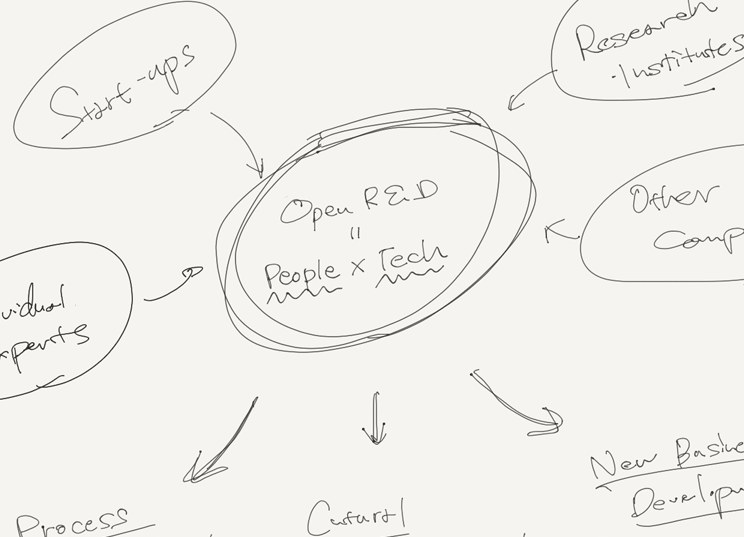 Start-ups
Research
Institutes
Open R&D
"
People × Tech
Other
Comp
vidual
xperts
Process
New Busine
Develop